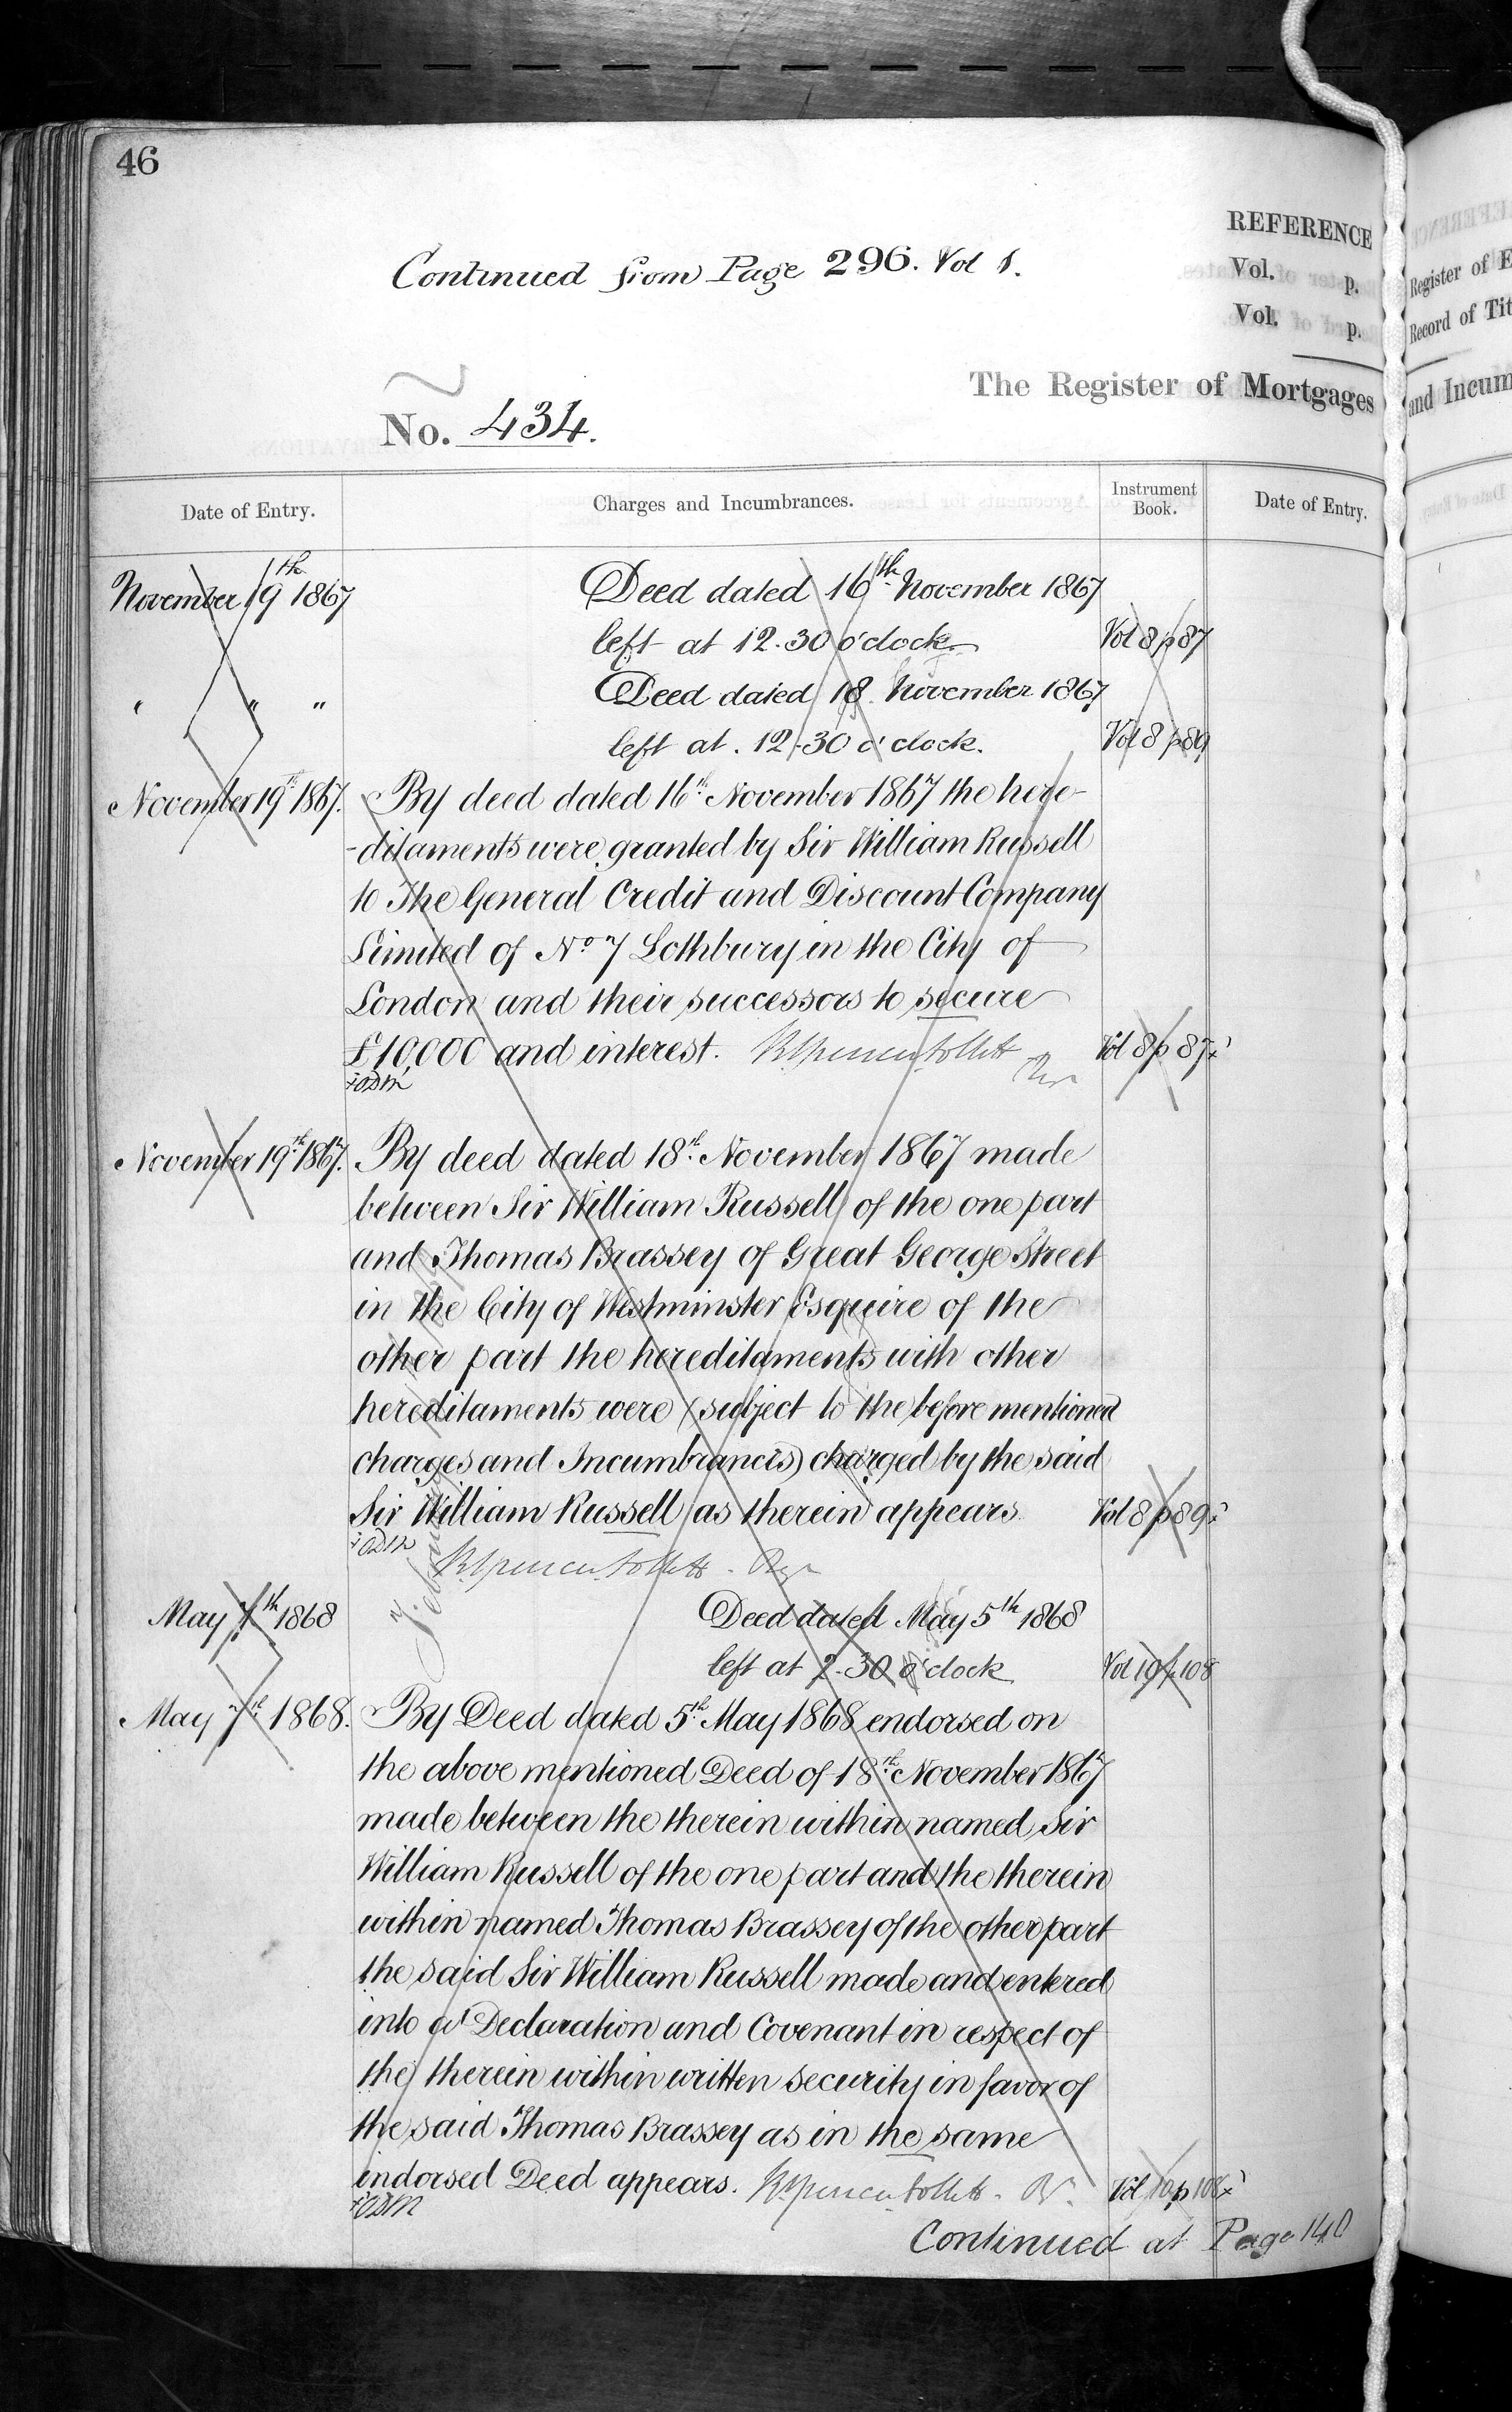 46
Continued from Page 296. Vol 1.
REFERENCE
Vol. p.
Vol. p.
Register of E
Record of Tit
The Register of Mortgages and Incum
No. 434.
Date of Entry.
Charges and Incumbrances.
Instrument Book.
Date of Entry.
November 19th 1867
Deed dated 16th November 1867
left at 12.30 o'clock
Vol 8 p 87
" " "
Deed dated 18 November 1867
left at. 12.30 o'clock.
Vol 8 p 89
November 19th 1867.
By deed dated 16th November 1867 the here-
-ditaments were granted by Sir William Russell
to The General Credit and Discount Company
Limited of No 7 Lothbury in the City of
London and their successors to secure
£10,000 and interest.
Vol 8 p 87
November 19th 1867.
By deed dated 18th November 1867 made
between Sir William Russell of the one part
and Thomas Brassey of Great George Street
in the City of Westminster Esquire of the
other part the hereditaments with other
hereditaments were (subject to the before mentioned
charges and Incumbrances) charged by the said
Sir William Russell as therein appears
Vol 8 p 89
May 7th 1868
Deed dated May 5th 1868
left at 2.30 o'clock
Vol 10 p 108
May 7th 1868.
By Deed dated 5th May 1868 endorsed on
the above mentioned Deed of 18th November 1867
made between the therein within named Sir
William Russell of the one part and the therein
within named Thomas Brassey of the other part
the said Sir William Russell made and entered
into a Declaration and Covenant in respect of
the therein within written security in favor of
the said Thomas Brassey as in the same
indorsed Deed appears.
Vol 10 p 108
Continued at Page 140